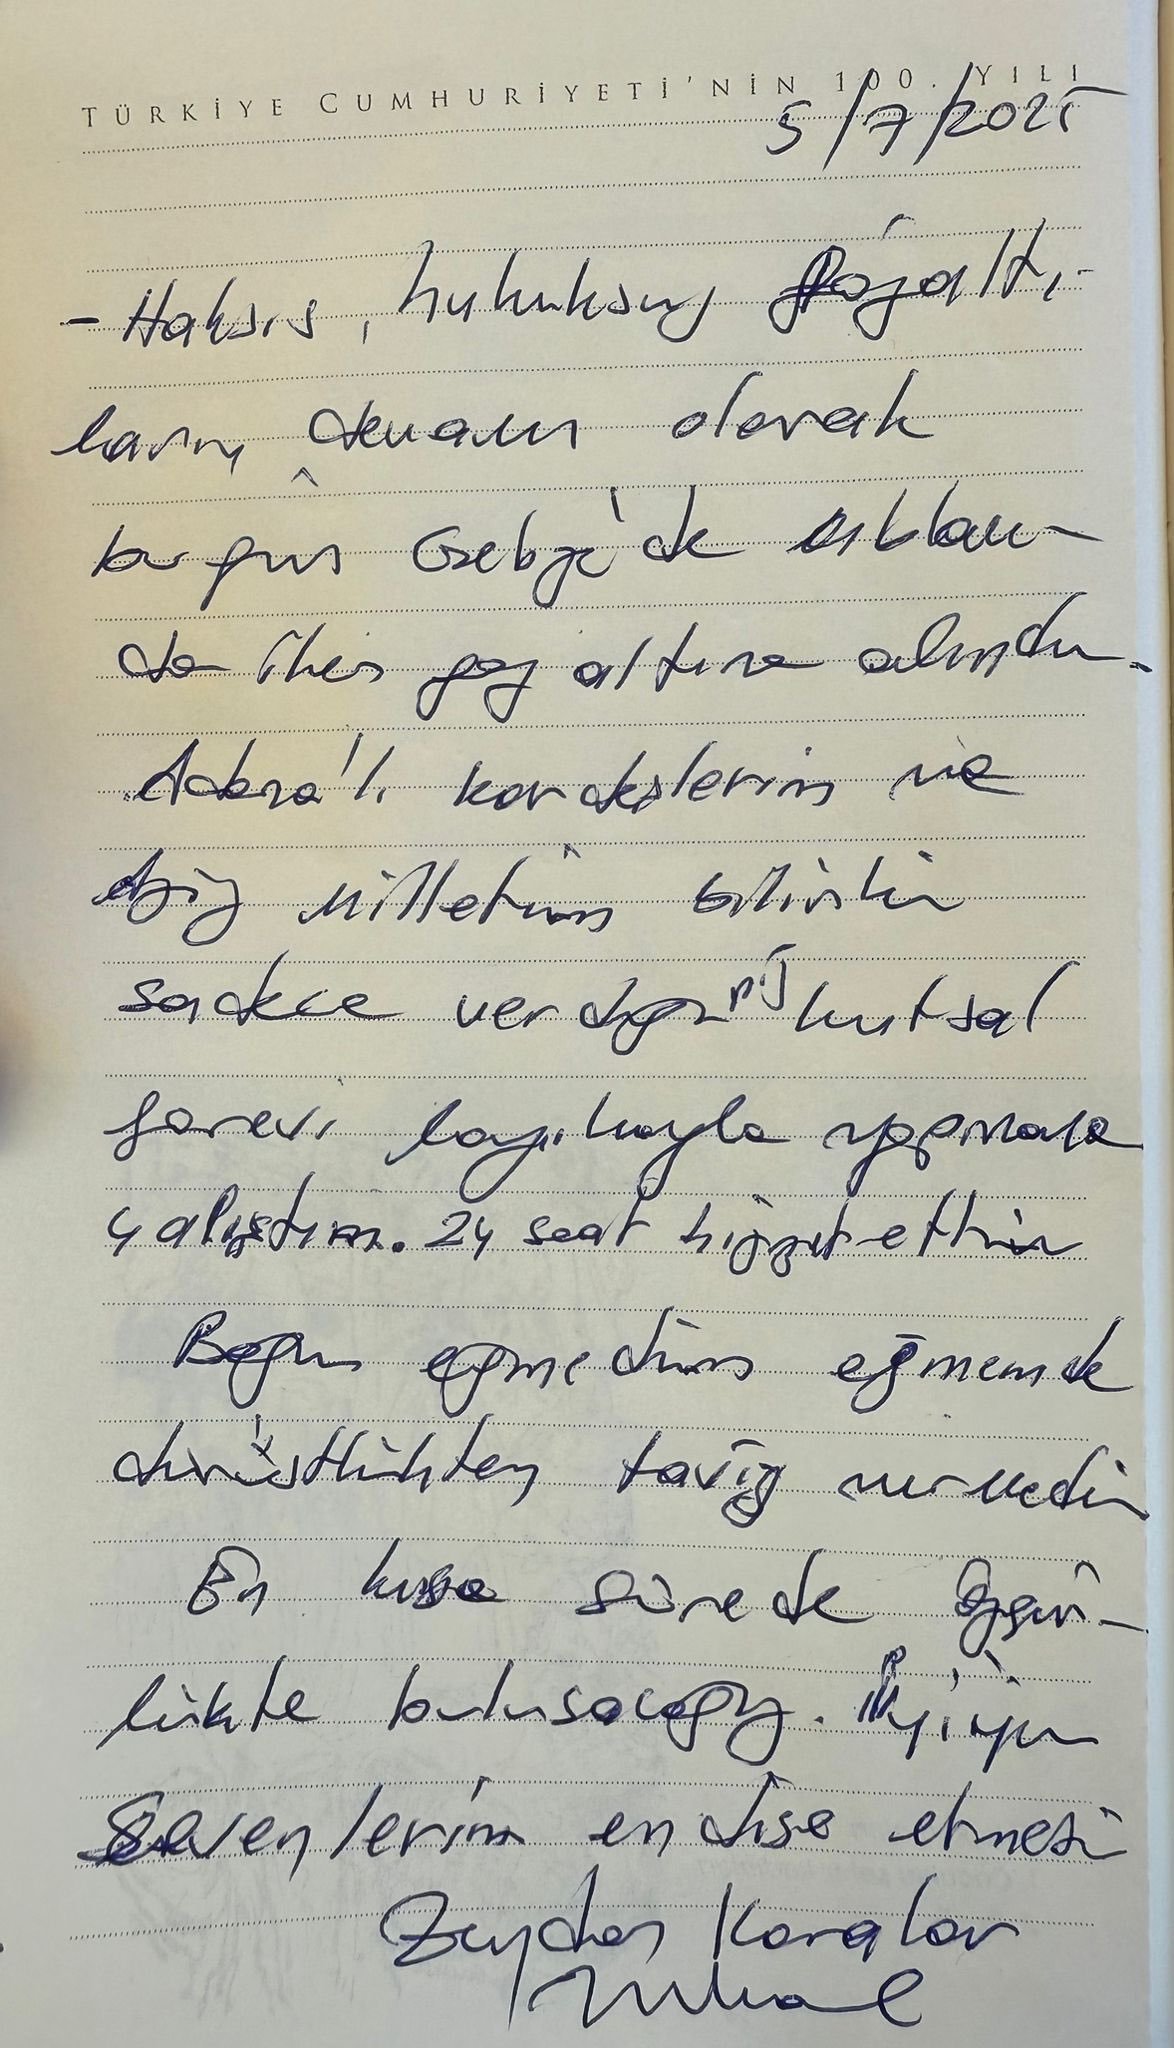 TÜRKİYE CUMHURİYETİ'NİN 100. YILI
5/7/2025
- Haksıs, hukuksuz gözaltı-
ların devamı olarak
bugün Gebze'de ablam-
da iken göz altına alındım.
Adana'lı kardeşlerim ve
Aziz Milletim bilsin ki
sadece verdiğiniz kutsal
görevi layıkıyla yapmaya
çalıştım. 24 saat hizmet ettim
Boyun eğmedim eğmemde
dürüstlükten taviz vermedim
En kısa sürede özgür-
lükte buluşacağız. iyiyim
Sevenlerim endişe etmesin
Zeydan Karalar